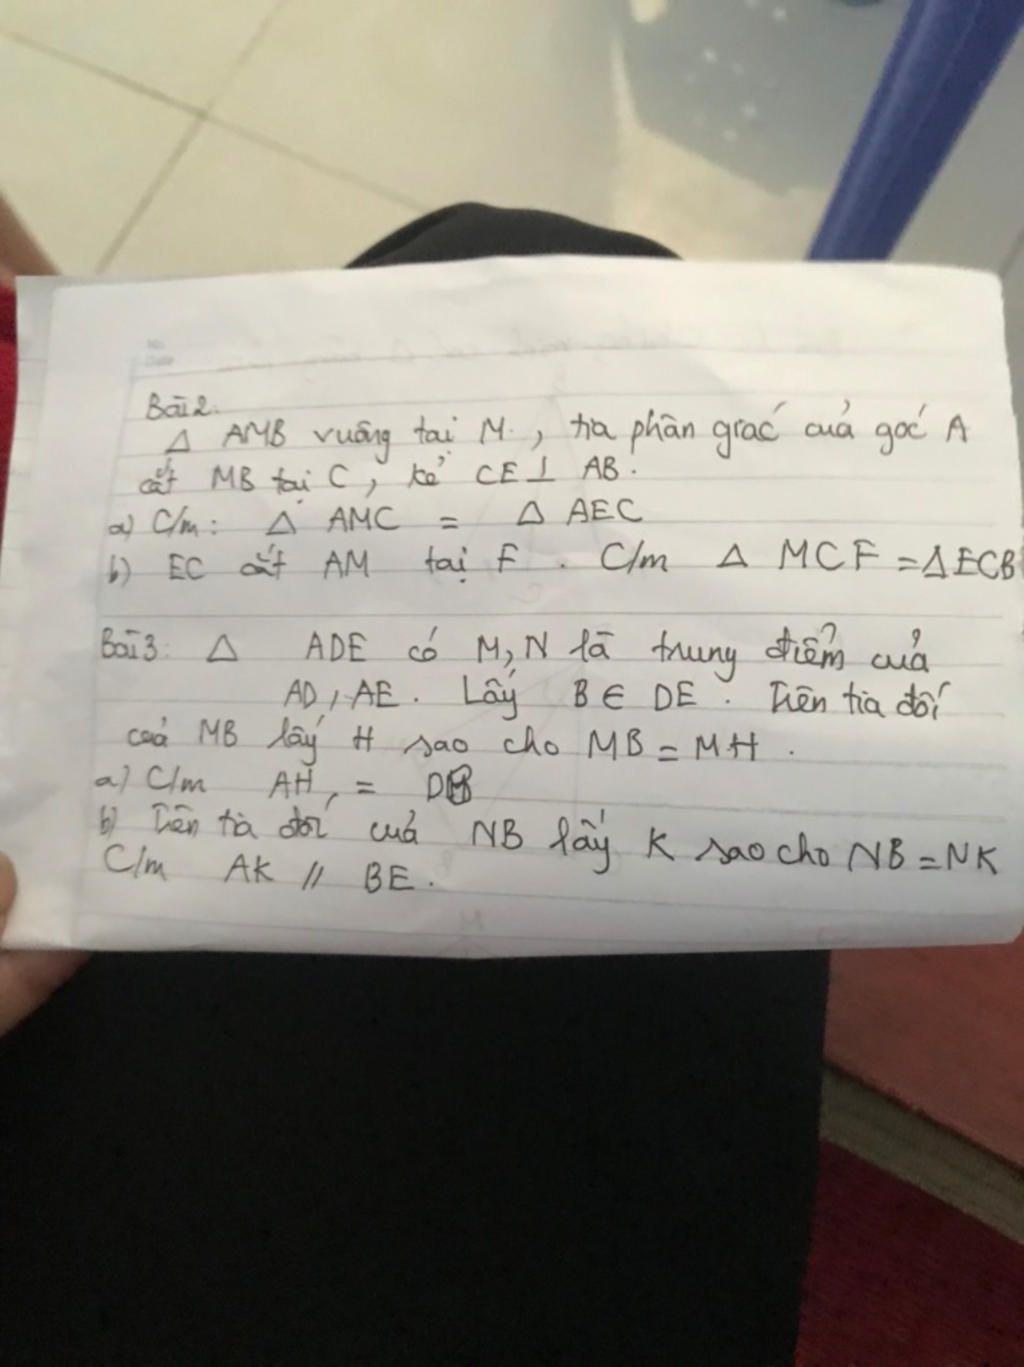 Bài 2.
Δ AMB vuông tại M , tia phân giác của góc A
cắt MB tại C , kẻ CE ⊥ AB .
a) C/m : Δ AMC = Δ AEC
b) EC cắt AM tại F . C/m Δ MCF = Δ ECB
Bài 3 : Δ ADE có M, N là trung điểm của
AD, AE . Lấy B ∈ DE . Trên tia đối
của MB lấy H sao cho MB = MH .
a) C/m AH = DB
b) Trên tia đối của NB lấy K sao cho NB = NK
C/m AK // BE .